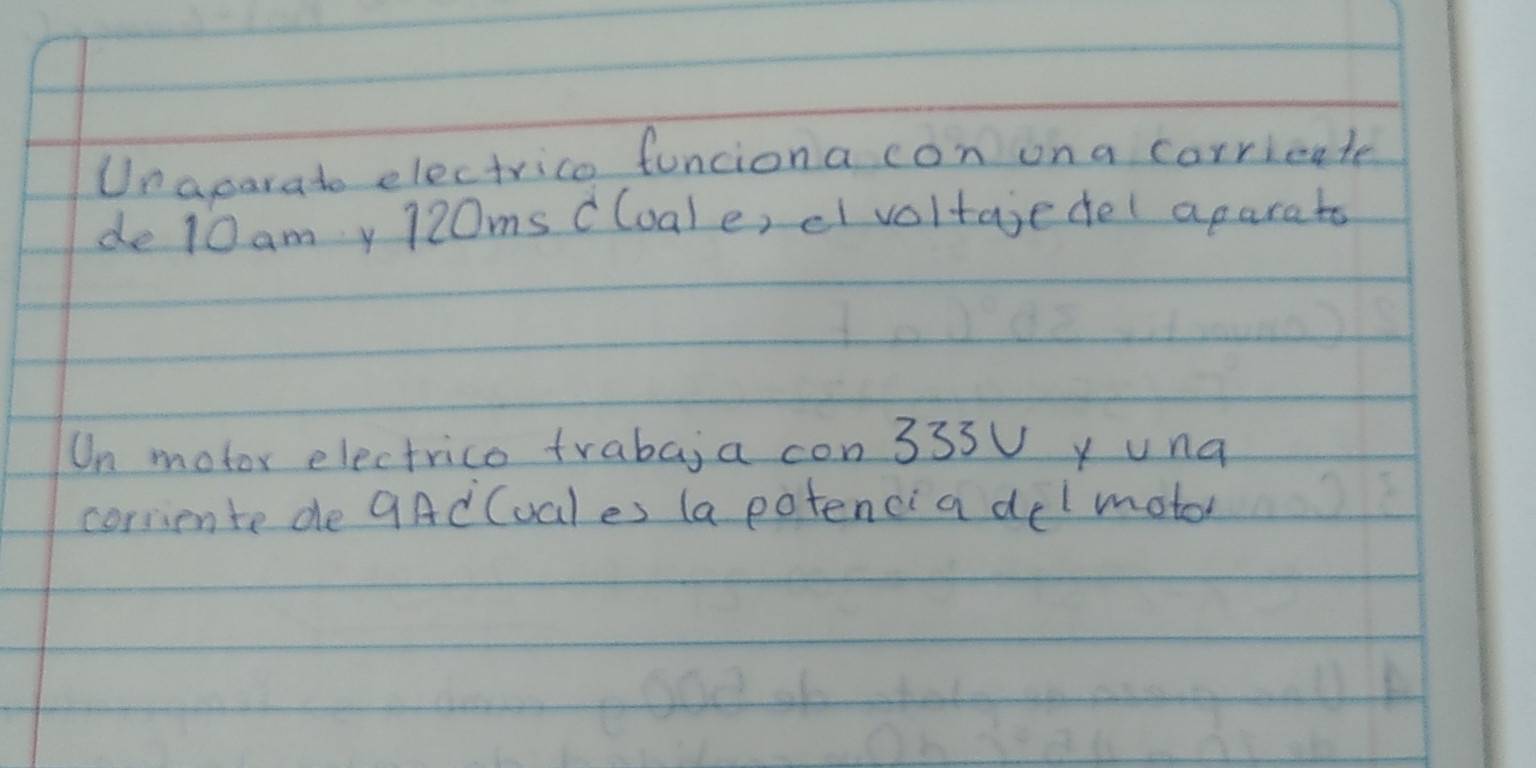 Un aparato electrico funciona con una corriente
de 10 am y 120ms ¿Cual es el voltaje del aparato
Un motor electrico trabaja con 333V y una
corriente de 9A ¿Cual es la potencia del motor